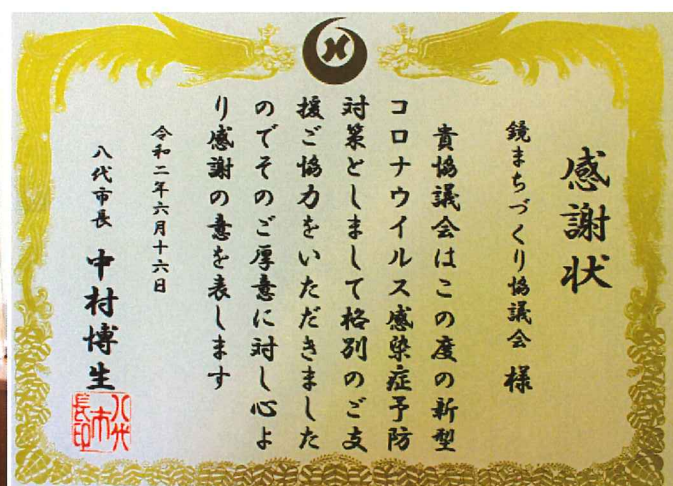 感謝状
鏡まちづくり協議会 様
貴協議会はこの度の新型
コロナウイルス感染症予防
対策としまして格別のご支
援ご協力をいただきました
のでそのご厚意に対し心よ
り感謝の意を表します
令和二年六月十六日
八代市長 中村博生
八代
市
長印